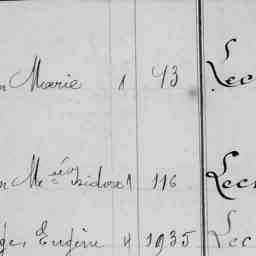 Marie 1 43 Lec
Isidore 1 116 Lec
Eugène 4 1935 Lec